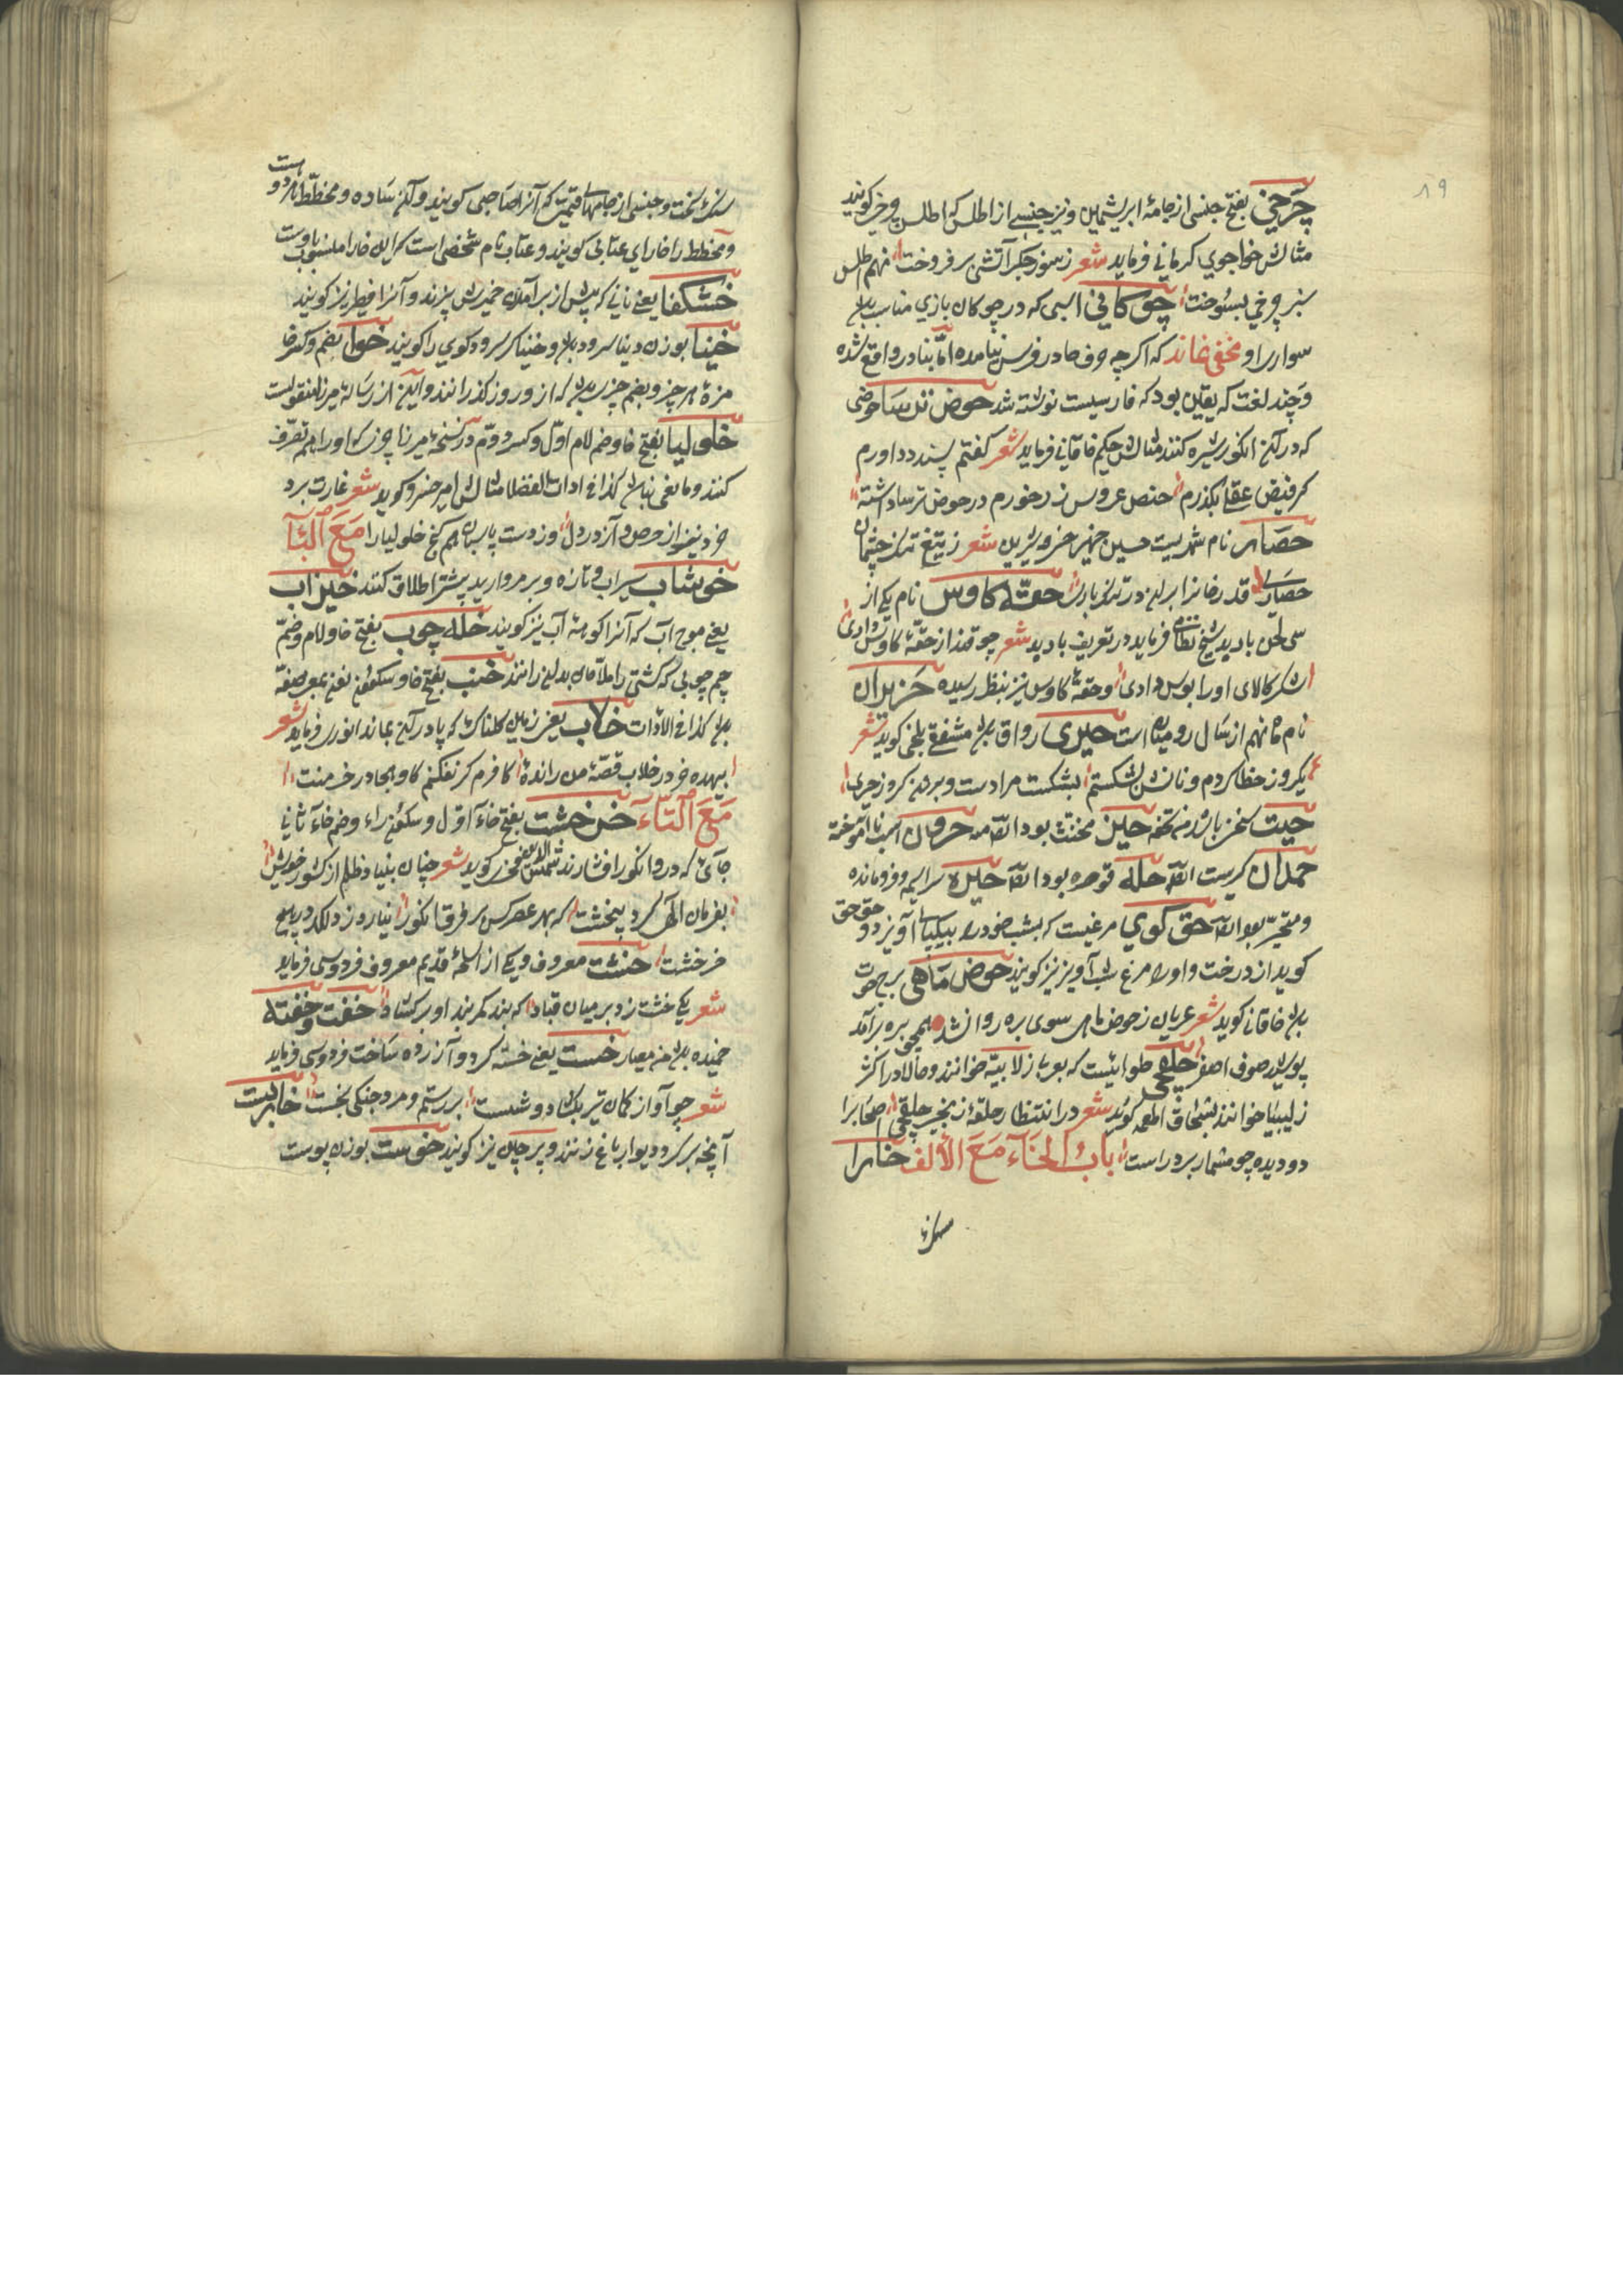 ۸۹
چرخی بفتح جنسی از جامهٔ ابریشمین و نیز جنسی از اطلس که اطلس چرخی کویند
مثالش خواجوي کرمانی فرماید شعر ز سوز جکر آتشی برفروخت نهم اطلس
سبز چرخی بسوخت چوکانی اسبی که در چوکان بازي مناسب بود
سواری او مخفی نماند که اکر چه حرف حا در فرس نیامده امّا بنادر واقع شده
و چند لغت که یقین بود که فارسیست نوشته شد حوض ترسا حوضی
که در آن انکور شیره کنند مثالش حکیم خاقانی فرماید شعر کفتم پسندد داورم
کز فیض عقلی بکذرم حیض عروس رز خورم در حوض ترسا داشته
حصار نام شهریست حسن خیز خسرو شیرین شعر ز تیغ تنک چشمان
حصاری قدر خان را بر آن در تنک باری حقهٔ کاوس نام یکی از
سی لحن باربد شیخ نظامی فرماید در تعریف باربد شعر چو قند از حقهٔ کاوس دادی
شکر کالای او را بوس دادی و حقهٔ کاوس نیز بنظر رسیده حزیران
نام ماه نهم از سال رومیان است حیری رواق بود مشفقی بلخی کوید شعر
یکروز خطا کردم و نانش بشکستم بشکست مرا دست و برون کرد ز حیری
حیت سخن باشد من تحفه حیز مخنث بود ایضا منه حرون اسب ناآموخته
حمدان کیرست ایضا حله قوصره بود ایضا حیره سراسیمه و فرومانده
و متحیر بود ایضا حق کوي مرغیست که بشب خود را بیکپا آویزد و حق حق
کوید از درخت و او را مرغ شب آویز نیز کویند حوض ماهی برج حوت
بود خاقانی کوید شعر عریان ز حوض ماهی سوی بره روان شد همچون بره برآمد
پوشیده صوف اصفر حلقه چی حلوائیست که بعربی زلابیه خوانند و حالا در اکثر
زلیبیا خوانند بسحاق اطعمه کوید شعر در انتظار حلقهٔ زنجیر حلقه چی اصحاب را
دو دیده چو مسمار بر در است باب الخاء مع الألف خارا
سنک
سنک سخت و جنسی از جامهای قیمتی که آنرا صاحبی کویند و آن ساده و مخطّط هر دو هست
و مخطط را خارای عتابی کویند و عتاب نام شخصی است که این خارا منسوب باوست
خشکفا یعنی نانی که پیش از برآمدن خمیرش پزند و آنرا فطیر نیز کویند
خنیا بوزن دنیا سرود بود و خنیاکر سرود کوي را کویند خوا بضم و کسر خا
مزهٔ هر چیز و بضم چیزی بود که ازو روز کذرانند و این از رسالهٔ میرزا منقولست
خلولیا بفتح خا و ضم لام اوّل و کسر دوّم در نسخهٔ میرزا چیزی که او را بهم تصرّف
کنند و مانعی نباشد کذا فی ادات الفضلا مثالش امیر خسرو کوید شعر غارت برد
خود نیز از حرص و آز در دل وز دست پاسبان هم کنج خلولیا را مع البآ
خوشاب سیراب و تازه و بر مروارید بیشتر اطلاق کنند خیزاب
یعنی موج آب که آنرا کوهه آب نیز کویند خله چوب بفتح خا و لام و ضمّ
چیم چوبی که کشتی را ملاّحان بدان رانند خنب بفتح خا و سکون نون بمعنی صفّه
بود کذا فی الادات خلاب یعنی زمین کلناک که پا در آن بماند انوری فرماید شعر
بیهده خر در خلاب قصّهٔ من راندهٔ کافرم کر نفکنم کاو هجا در خرمنت
مع التاء خرخشت بفتح خآء اوّل و سکون راء و ضم خآء ثانی
جائی که درو انکور افشارند شمس الدین فخری کوید شعر چنان بنیاد ظلم از کشور خویش
بفرمان الهی کرد بیخشت که بهر عصر کس بر فرق انکور نیارد زد لکد در هیچ
خرخشت خشت معروف و یکی از اسلحهٔ قدیم معروف فردوسی فرماید
شعر یکی خشت زد بر میان قباد که بند کمربند او برکشاد خفت و خفته
خمیده بود من معیار خست یعنی خسته کرد و آزرده ساخت فردوسی فرماید
شعر چو آواز کمان تیر بکشاد و شست بر رستم و مرد جنکی بخست خاربست
آنچه بر کرد دیوار باغ زنند و پرچین نیز کویند خوست بوزن پوست